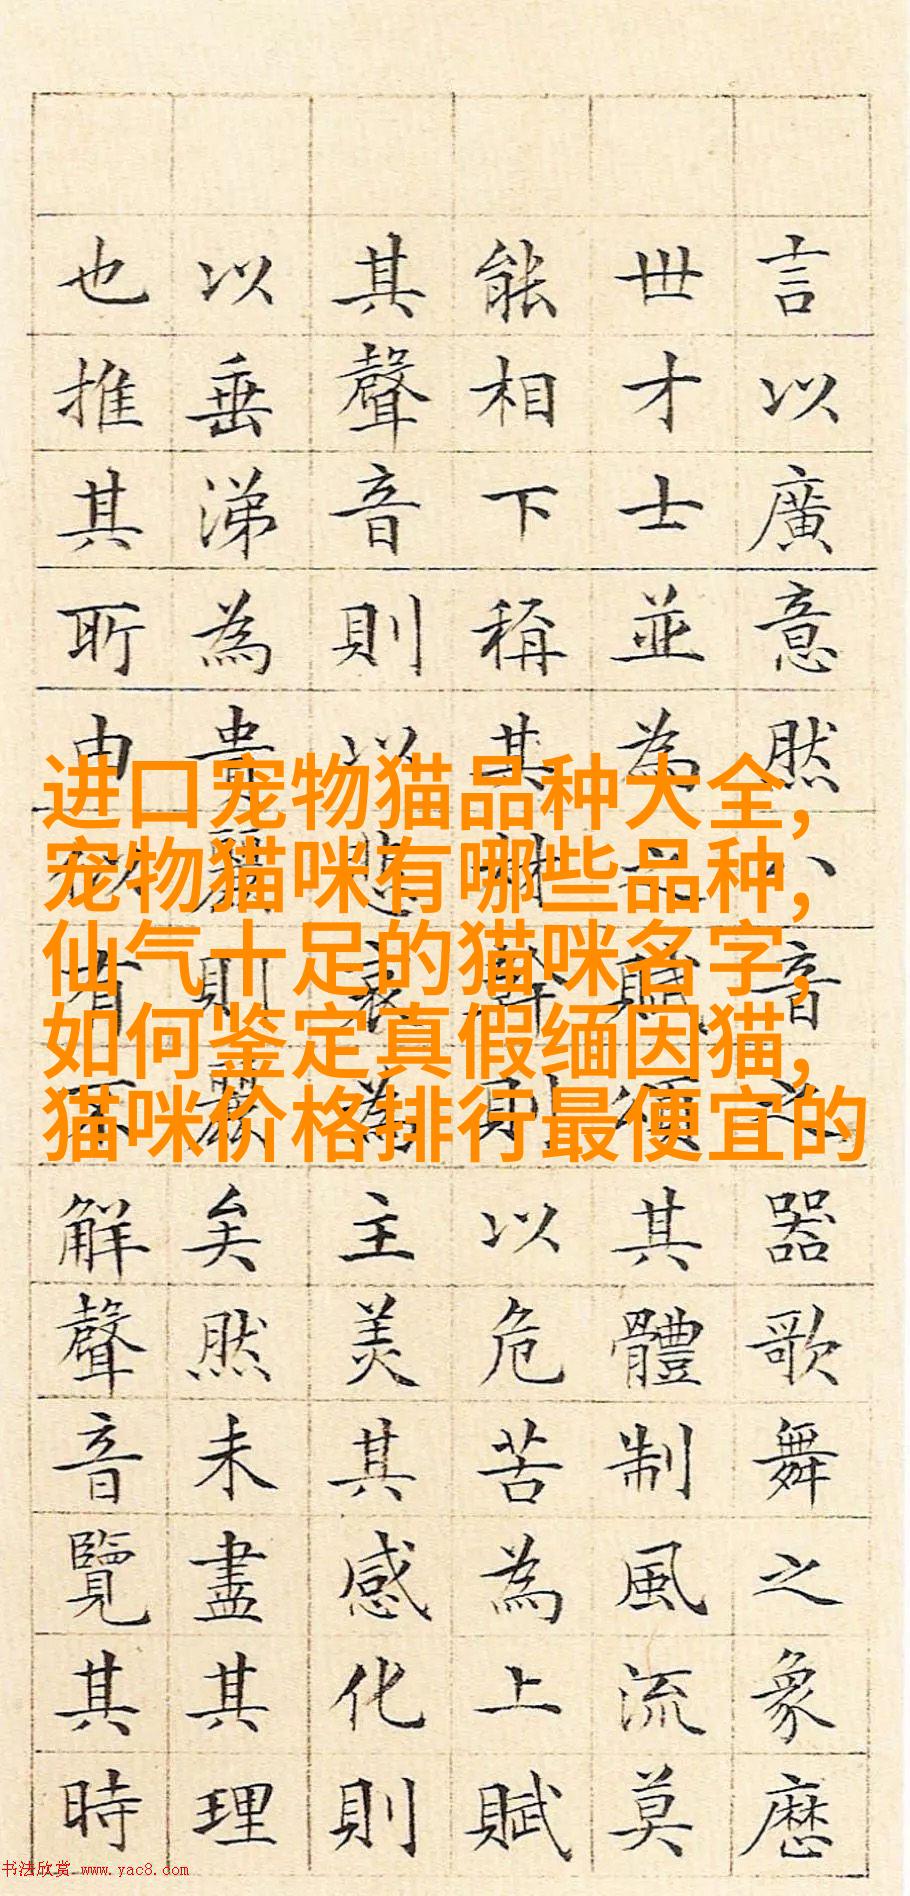 言以廣意然八音之器歌舞之象歷
世才士並為之賦頌其體制風流莫
能相下稱其材幹則以危苦為上賦
其聲音則以悲哀為主美其感化則
以垂涕為貴麗則麗矣然未盡其理
也推其所由似不解聲音覽其時
进口宠物猫品种大全,
宠物猫咪有哪些品种,
仙气十足的猫咪名字,
如何鉴定真假缅因猫,
猫咪价格排行最便宜的
书法欣赏 www.yac8.com